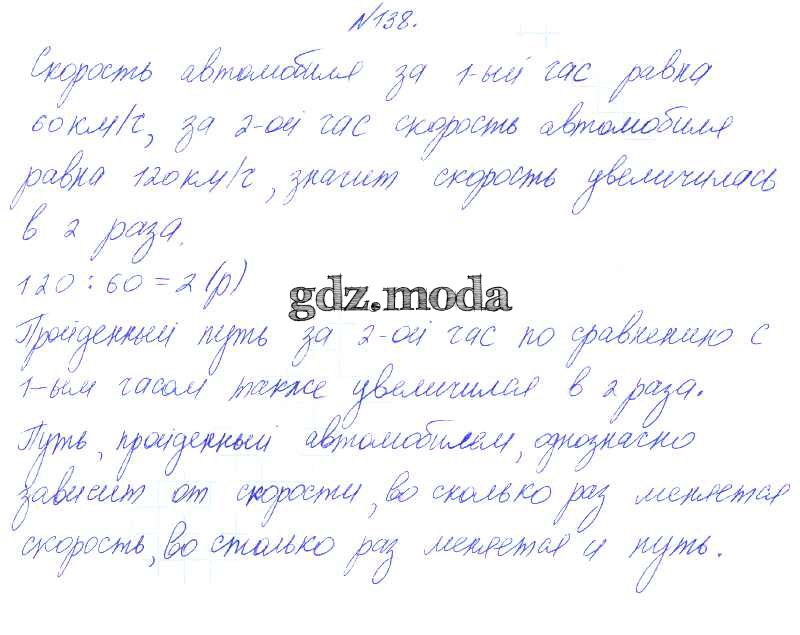 №138.
Скорость автомобиля за 1-ый час равна
60км/ч, за 2-ой час скорость автомобиля
равна 120км/ч, значит скорость увеличилась
в 2 раза.
120:60=2(р)
gdz.moda
Пройденный путь за 2-ой час по сравнению с
1-ым часом также увеличился в 2 раза.
Путь, пройденный автомобилем, однозначно
зависит от скорости, во сколько раз меняется
скорость, во столько раз меняется и путь.